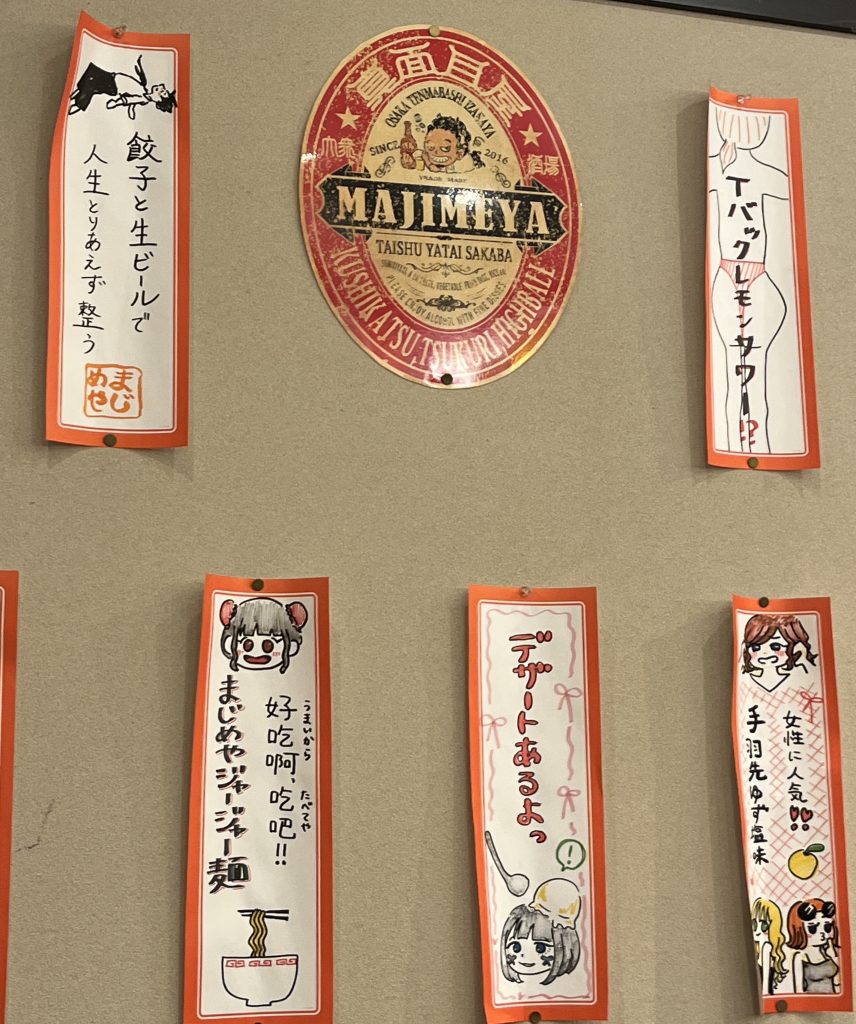 餃子と生ビールで
人生とりあえず整う
まじ
めや
真面目屋
OSAKA TENMABASHI IZAKAYA
大衆
SINCE
2016
酒場
TRADE MARK
MAJIMEYA
TAISHU YATAI SAKABA
PLEASE ENJOY ALCOHOL WITH FINE DISHES
KUSHIKATSU, TSUKURI, HIGHBALL
Tバックレモンサワー!?
うまいから たべてや
好吃啊、吃吧!!
まじめやジャージャー麺
デザートあるよっ
!
女性に人気!!
手羽先ゆず塩味